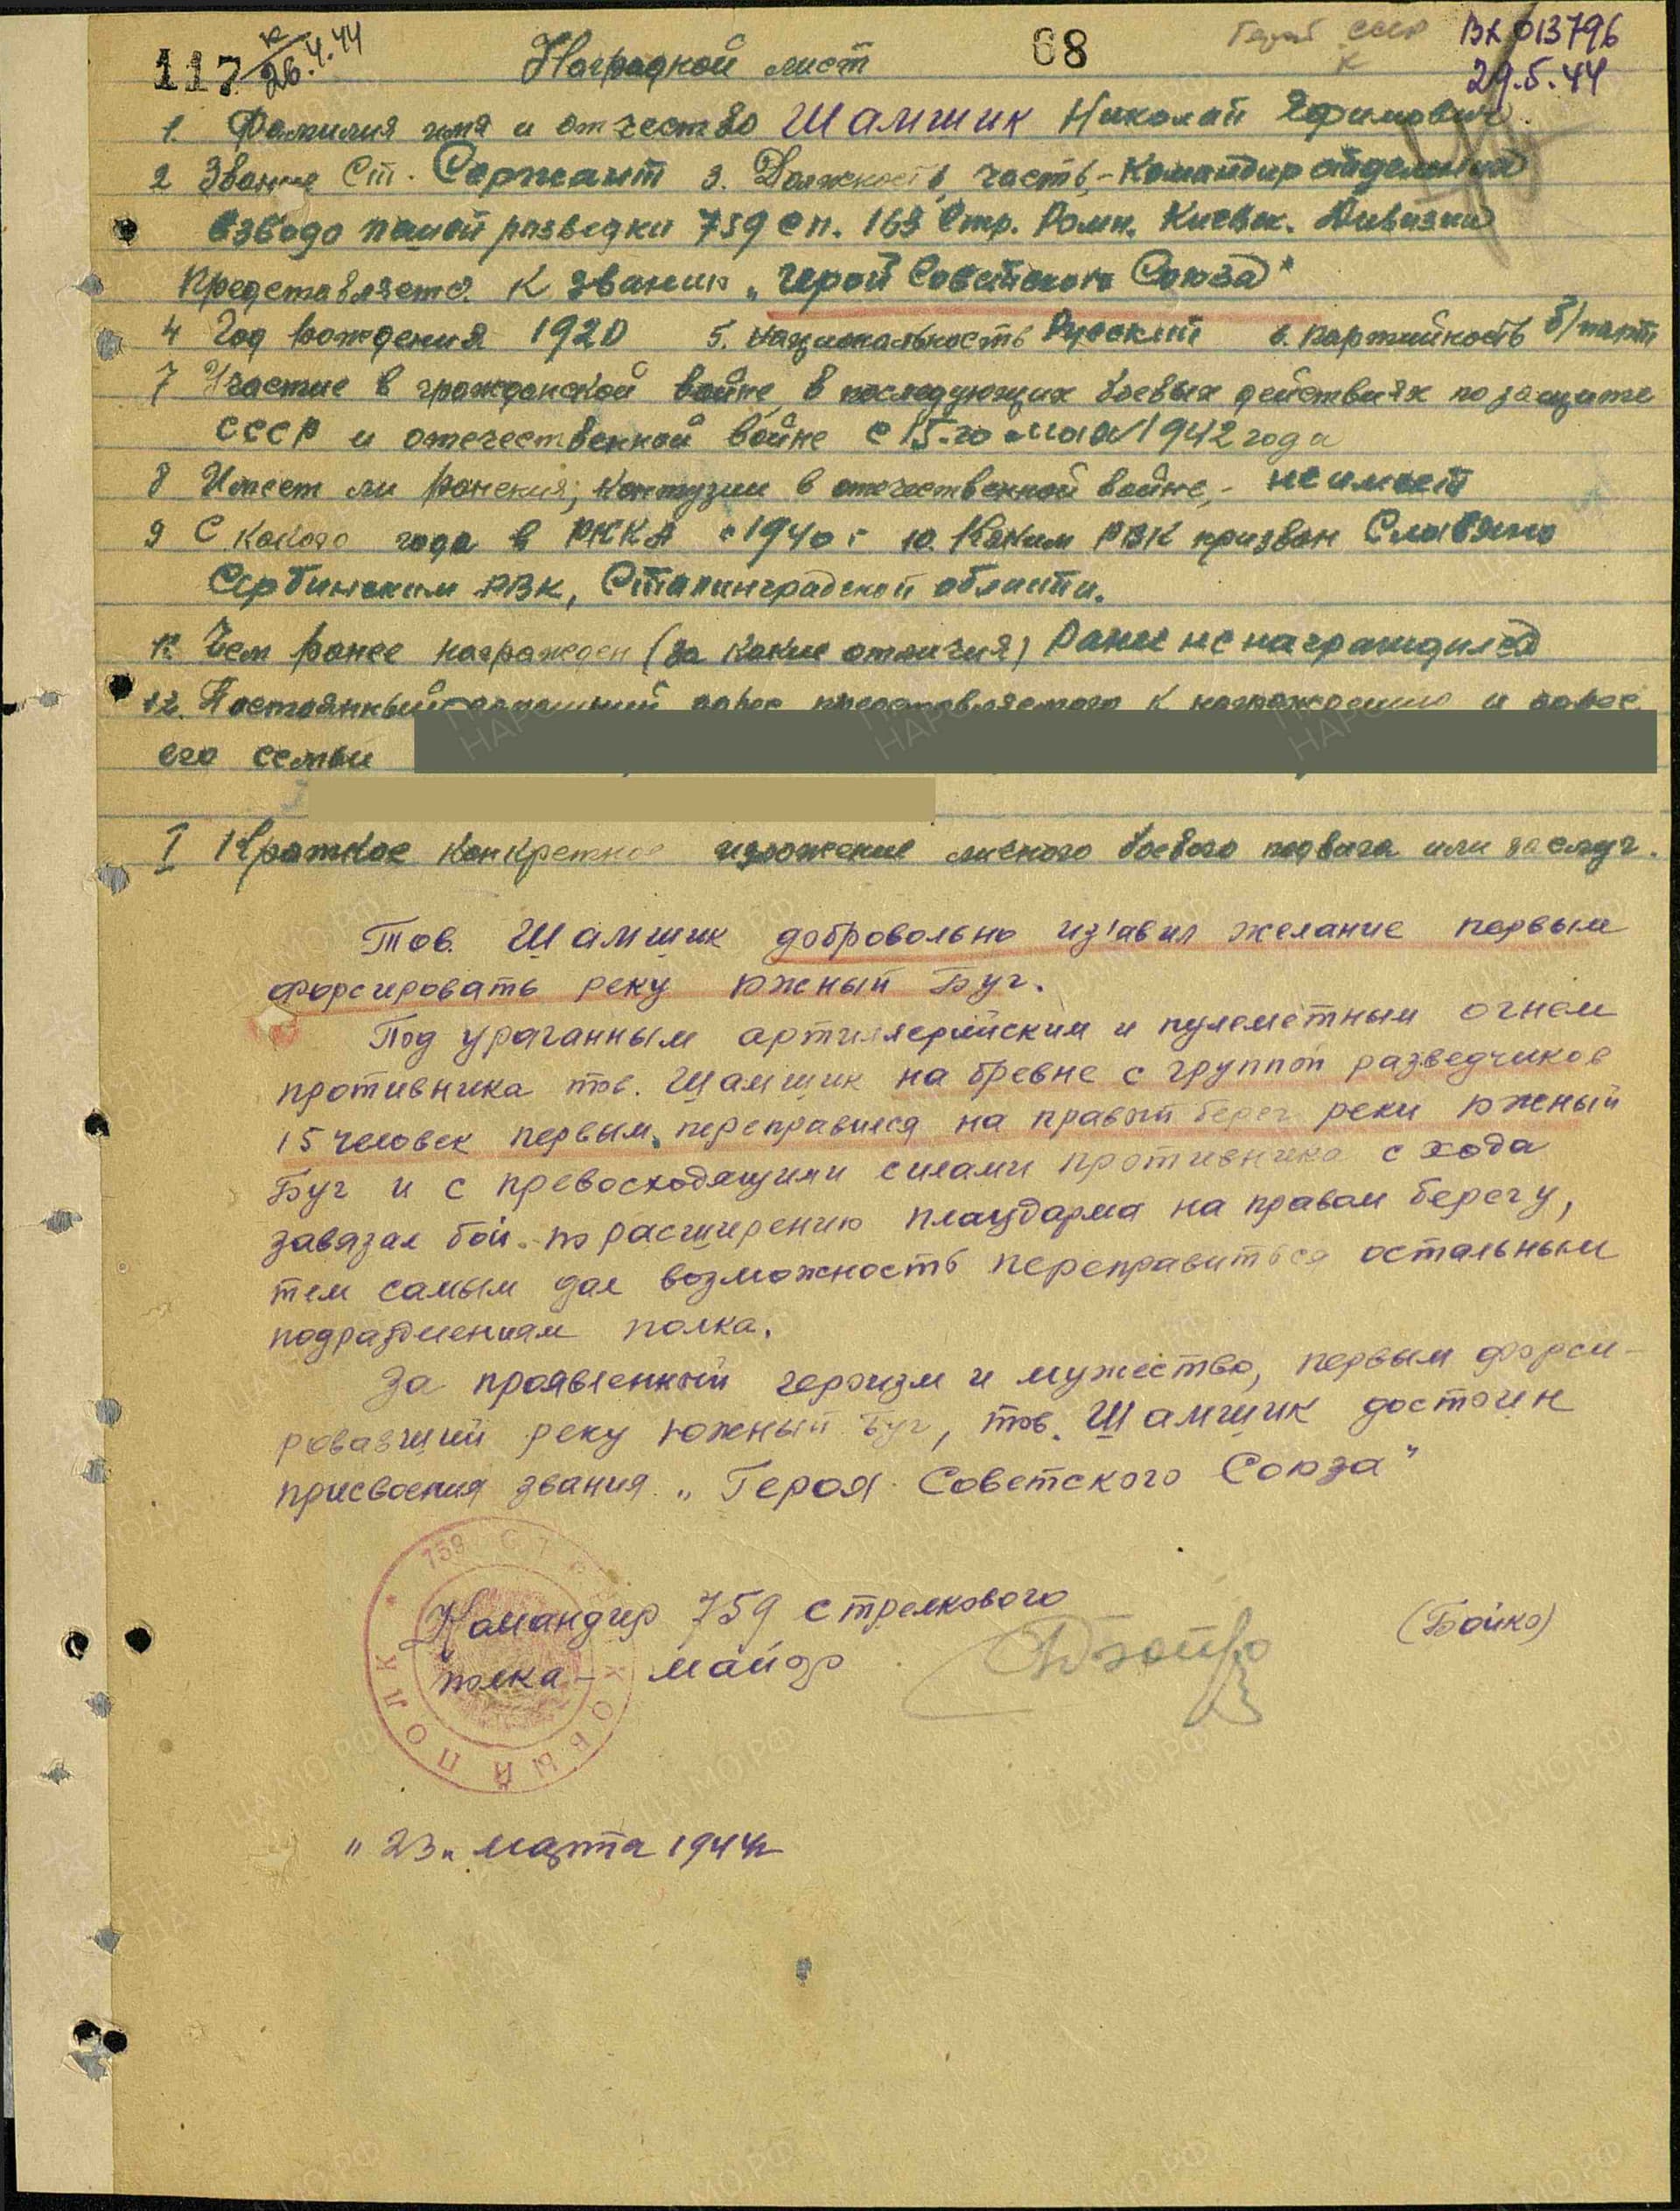 117 К/26.4.44 Наградной лист 68 Герой СССР ВХ 013796
К 29.5.44
1. Фамилия имя и отчество Шамшик Николай Ефимович
2 Звание Ст. Сержант 3. Должность, часть, - Командир отделения
взвода пешей разведки 759 сп. 163 Стр. Ромн. Киевск. Дивизии
Представляется К званию „Герой Советского Союза"
4 Год рождения 1920 5. национальность Русский 6. партийность б/парт
7 Участие в гражданской войне, в последующих боевых действиях по защите
СССР и отечественной войне с 15-го мая 1942 года
8 Имеет ли ранения, контузии в отечественной войне, - не имеет
9 С какого года в РККА с 1940 г 10. Каким РВК призван Славяно
Сербинским РВК, Сталинградской области.
11. Чем ранее награжден (за какие отличия) Ранее не награждался
12. Постоянный домашний адрес представляемого к награждению и адрес
его семьи
I Краткое конкретное изложение личного боевого подвига или заслуг.
Тов. Шамшик добровольно из'авил желание первым
форсировать реку Южный Буг.
Под ураганным артиллерийским и пулеметным огнем
противника тов. Шамшик на бревне с группой разведчиков
15 человек первым, переправился на правый берег реки Южный
Буг и с превосходящими силами противника с хода
завязал бой по расширению плацдарма на правом берегу,
тем самым дал возможность переправиться остальным
подразделениям полка.
За проявленный героизм и мужество, первым форси-
ровавший реку Южный Буг, тов. Шамшик достоин
присвоения звания „Героя Советского Союза"
759 СТРЕЛКОВЫЙ ПОЛК
Командир 759 стрелкового
полка - майор (Бойко)
„23" марта 1944г